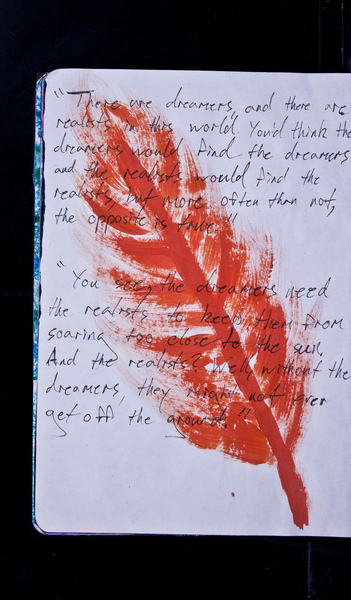 "There are dreamers, and there are
realists in this world. You'd think the
dreamers would find the dreamers
and the realists would find the
realists, but more often than not,
the opposite is true."
"You see, the dreamers need
the realists to keep them from
soaring too close to the sun.
And the realists? Well, without the
dreamers, they might not ever
get off the ground."